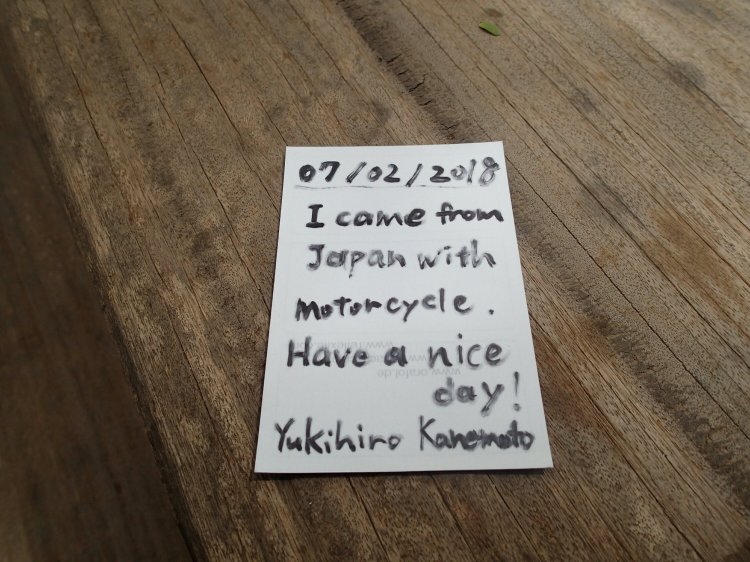 07/02/2018
I came from
Japan with
motorcycle.
Have a nice
day!
Yukihiro Kanemoto